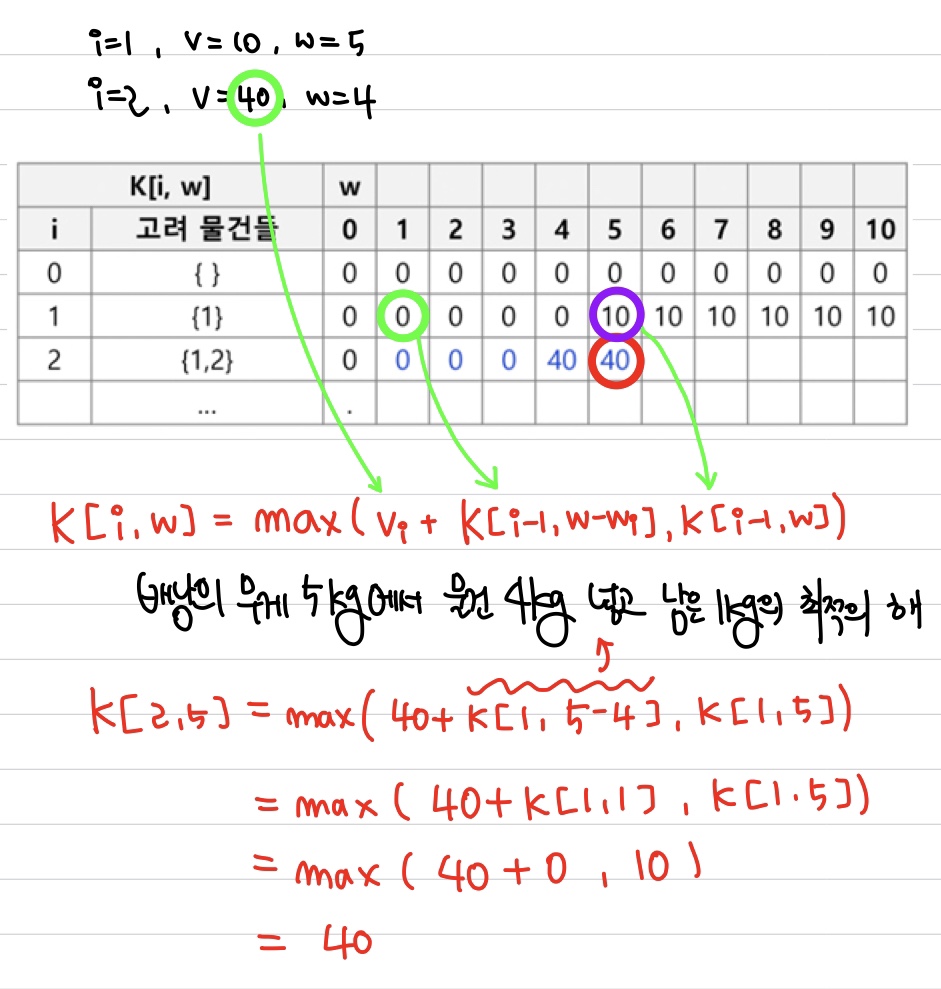 i=1, v=10, w=5
i=2, v=40, w=4
K[i, w] w
i 고려 물건들 0 1 2 3 4 5 6 7 8 9 10
0 { } 0 0 0 0 0 0 0 0 0 0 0
1 {1} 0 0 0 0 0 10 10 10 10 10 10
2 {1,2} 0 0 0 0 40 40
... .
K[i,w] = max(vi + K[i-1,w-wi], K[i-1,w])
배낭의 무게 5kg에서 물건 4kg 넣고 남은 1kg의 최적의 해
K[2,5] = max(40+K[1, 5-4], K[1,5])
= max(40+K[1,1], K[1.5])
= max(40+0, 10)
= 40